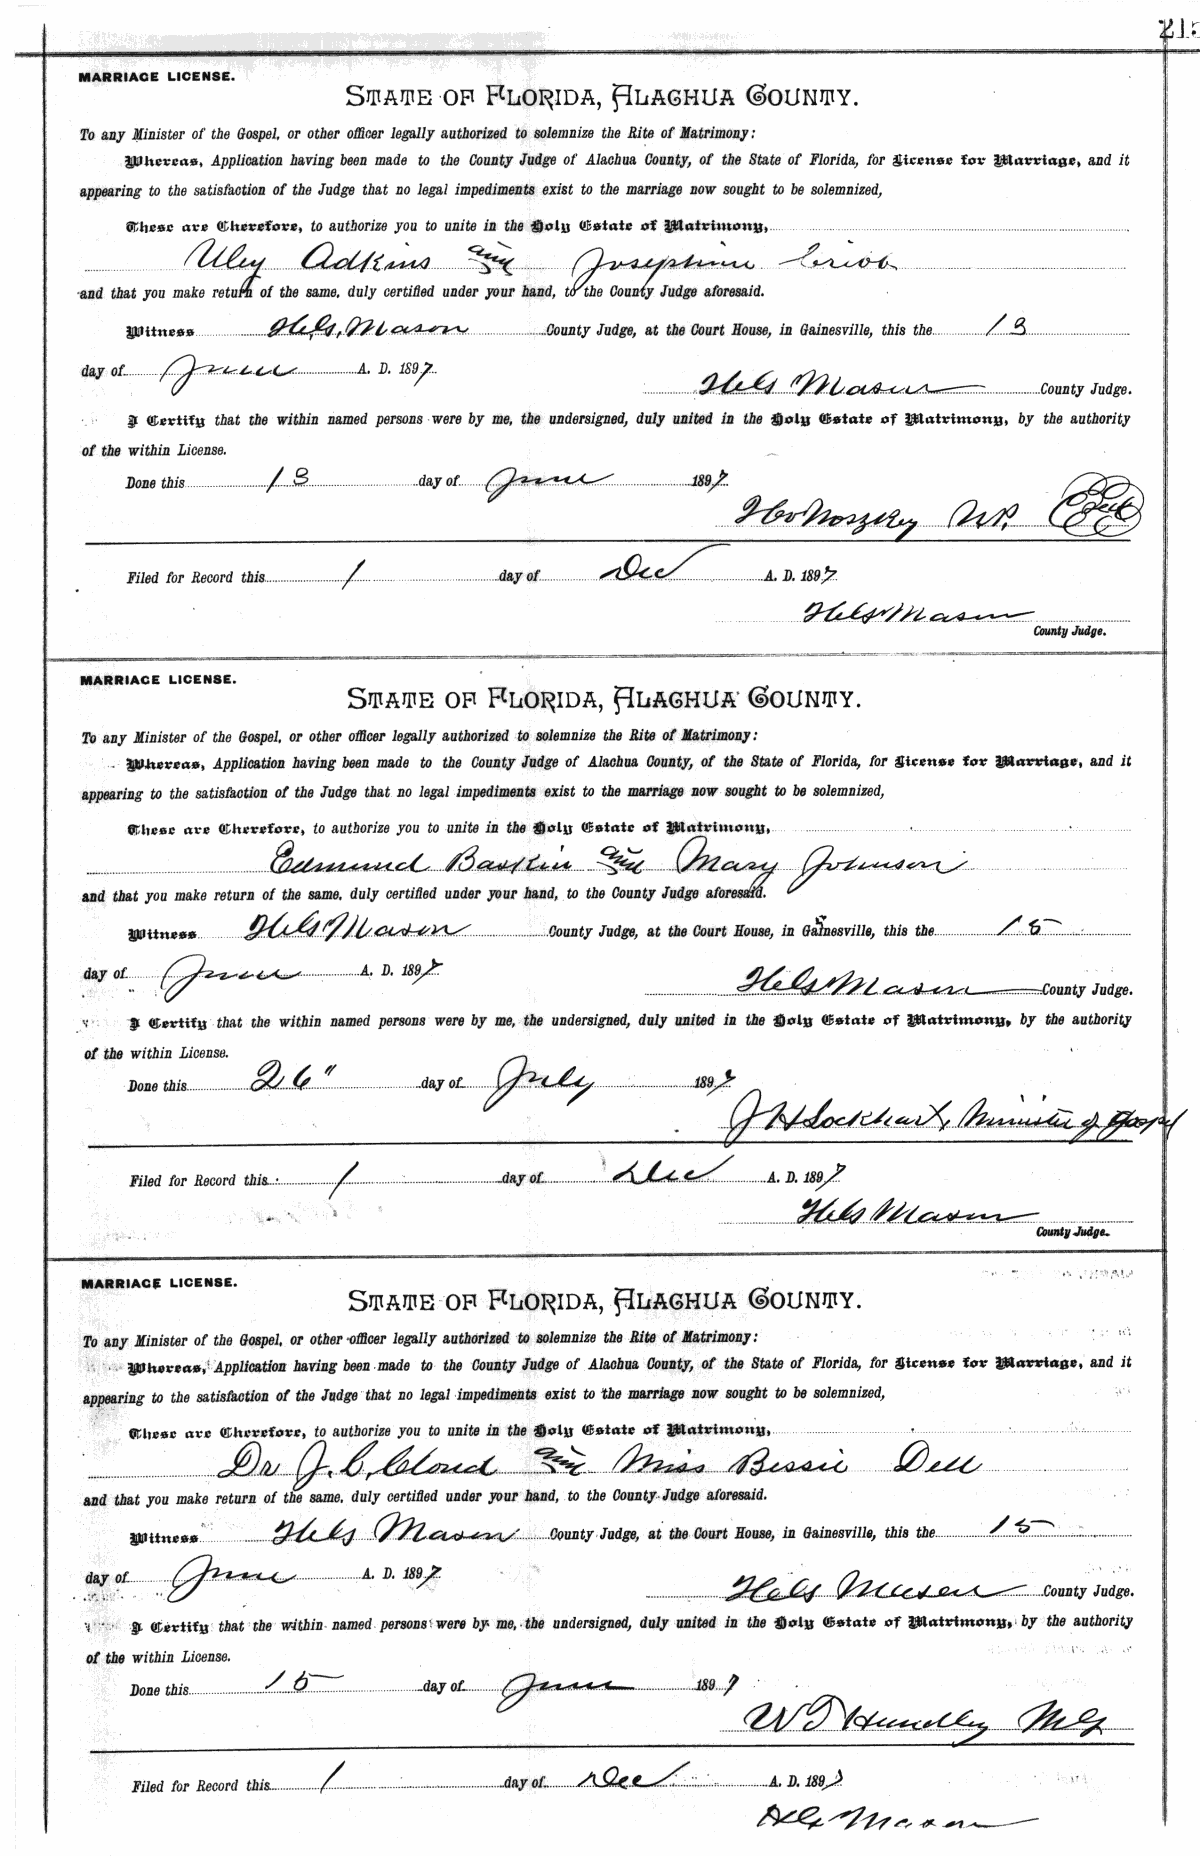 215
MARRIAGE LICENSE.
STATE OF FLORIDA, ALACHUA COUNTY.
To any Minister of the Gospel, or other officer legally authorized to solemnize the Rite of Matrimony:
Whereas, Application having been made to the County Judge of Alachua County, of the State of Florida, for License for Marriage, and it
appearing to the satisfaction of the Judge that no legal impediments exist to the marriage now sought to be solemnized,
These are Therefore, to authorize you to unite in the Holy Estate of Matrimony,
Uley Adkins and Josephine Cribb
and that you make return of the same, duly certified under your hand, to the County Judge aforesaid.
Witness H.G. Mason County Judge, at the Court House, in Gainesville, this the 13
day of June A. D. 1897
H G Mason County Judge.
I Certify that the within named persons were by me, the undersigned, duly united in the Holy Estate of Matrimony, by the authority
of the within License.
Done this 13 day of June 1897
N.P.
Filed for Record this 1 day of Dec A. D. 1897
H G Mason
County Judge.
MARRIAGE LICENSE.
STATE OF FLORIDA, ALACHUA COUNTY.
To any Minister of the Gospel, or other officer legally authorized to solemnize the Rite of Matrimony:
Whereas, Application having been made to the County Judge of Alachua County, of the State of Florida, for License for Marriage, and it
appearing to the satisfaction of the Judge that no legal impediments exist to the marriage now sought to be solemnized,
These are Therefore, to authorize you to unite in the Holy Estate of Matrimony,
Edmund Baskin and Mary Johnson
and that you make return of the same, duly certified under your hand, to the County Judge aforesaid.
Witness H G Mason County Judge, at the Court House, in Gainesville, this the 15
day of June A. D. 1897
H G Mason County Judge.
I Certify that the within named persons were by me, the undersigned, duly united in the Holy Estate of Matrimony, by the authority
of the within License.
Done this 26" day of July 1897
J H Lockhart, Minister of Gospel
Filed for Record this 1 day of Dec A. D. 1897
H G Mason
County Judge.
MARRIAGE LICENSE.
STATE OF FLORIDA, ALACHUA COUNTY.
To any Minister of the Gospel, or other officer legally authorized to solemnize the Rite of Matrimony:
Whereas, Application having been made to the County Judge of Alachua County, of the State of Florida, for License for Marriage, and it
appearing to the satisfaction of the Judge that no legal impediments exist to the marriage now sought to be solemnized,
These are Therefore, to authorize you to unite in the Holy Estate of Matrimony,
Dr J. C. Cloud and Miss Bessie Dell
and that you make return of the same, duly certified under your hand, to the County Judge aforesaid.
Witness H G Mason County Judge, at the Court House, in Gainesville, this the 15
day of June A. D. 1897
H G Mason County Judge.
I Certify that the within named persons were by me, the undersigned, duly united in the Holy Estate of Matrimony, by the authority
of the within License.
Done this 15 day of June 1897
W T Hundley M G
Filed for Record this 1 day of Dec A. D. 1897
H G Mason